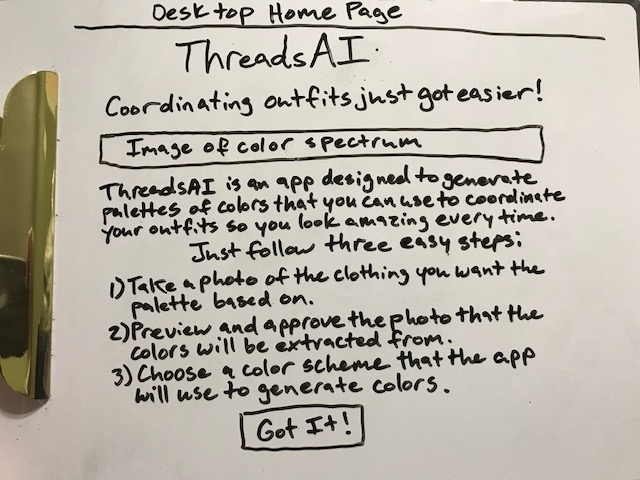 Desktop Home Page
ThreadsAI.
Coordinating outfits just got easier!
Image of color spectrum
ThreadsAI is an app designed to generate
palettes of colors that you can use to coordinate
your outfits so you look amazing every time.
Just follow three easy steps:
1) Take a photo of the clothing you want the
palette based on.
2) Preview and approve the photo that the
colors will be extracted from.
3) Choose a color scheme that the app
will use to generate colors.
Got It!